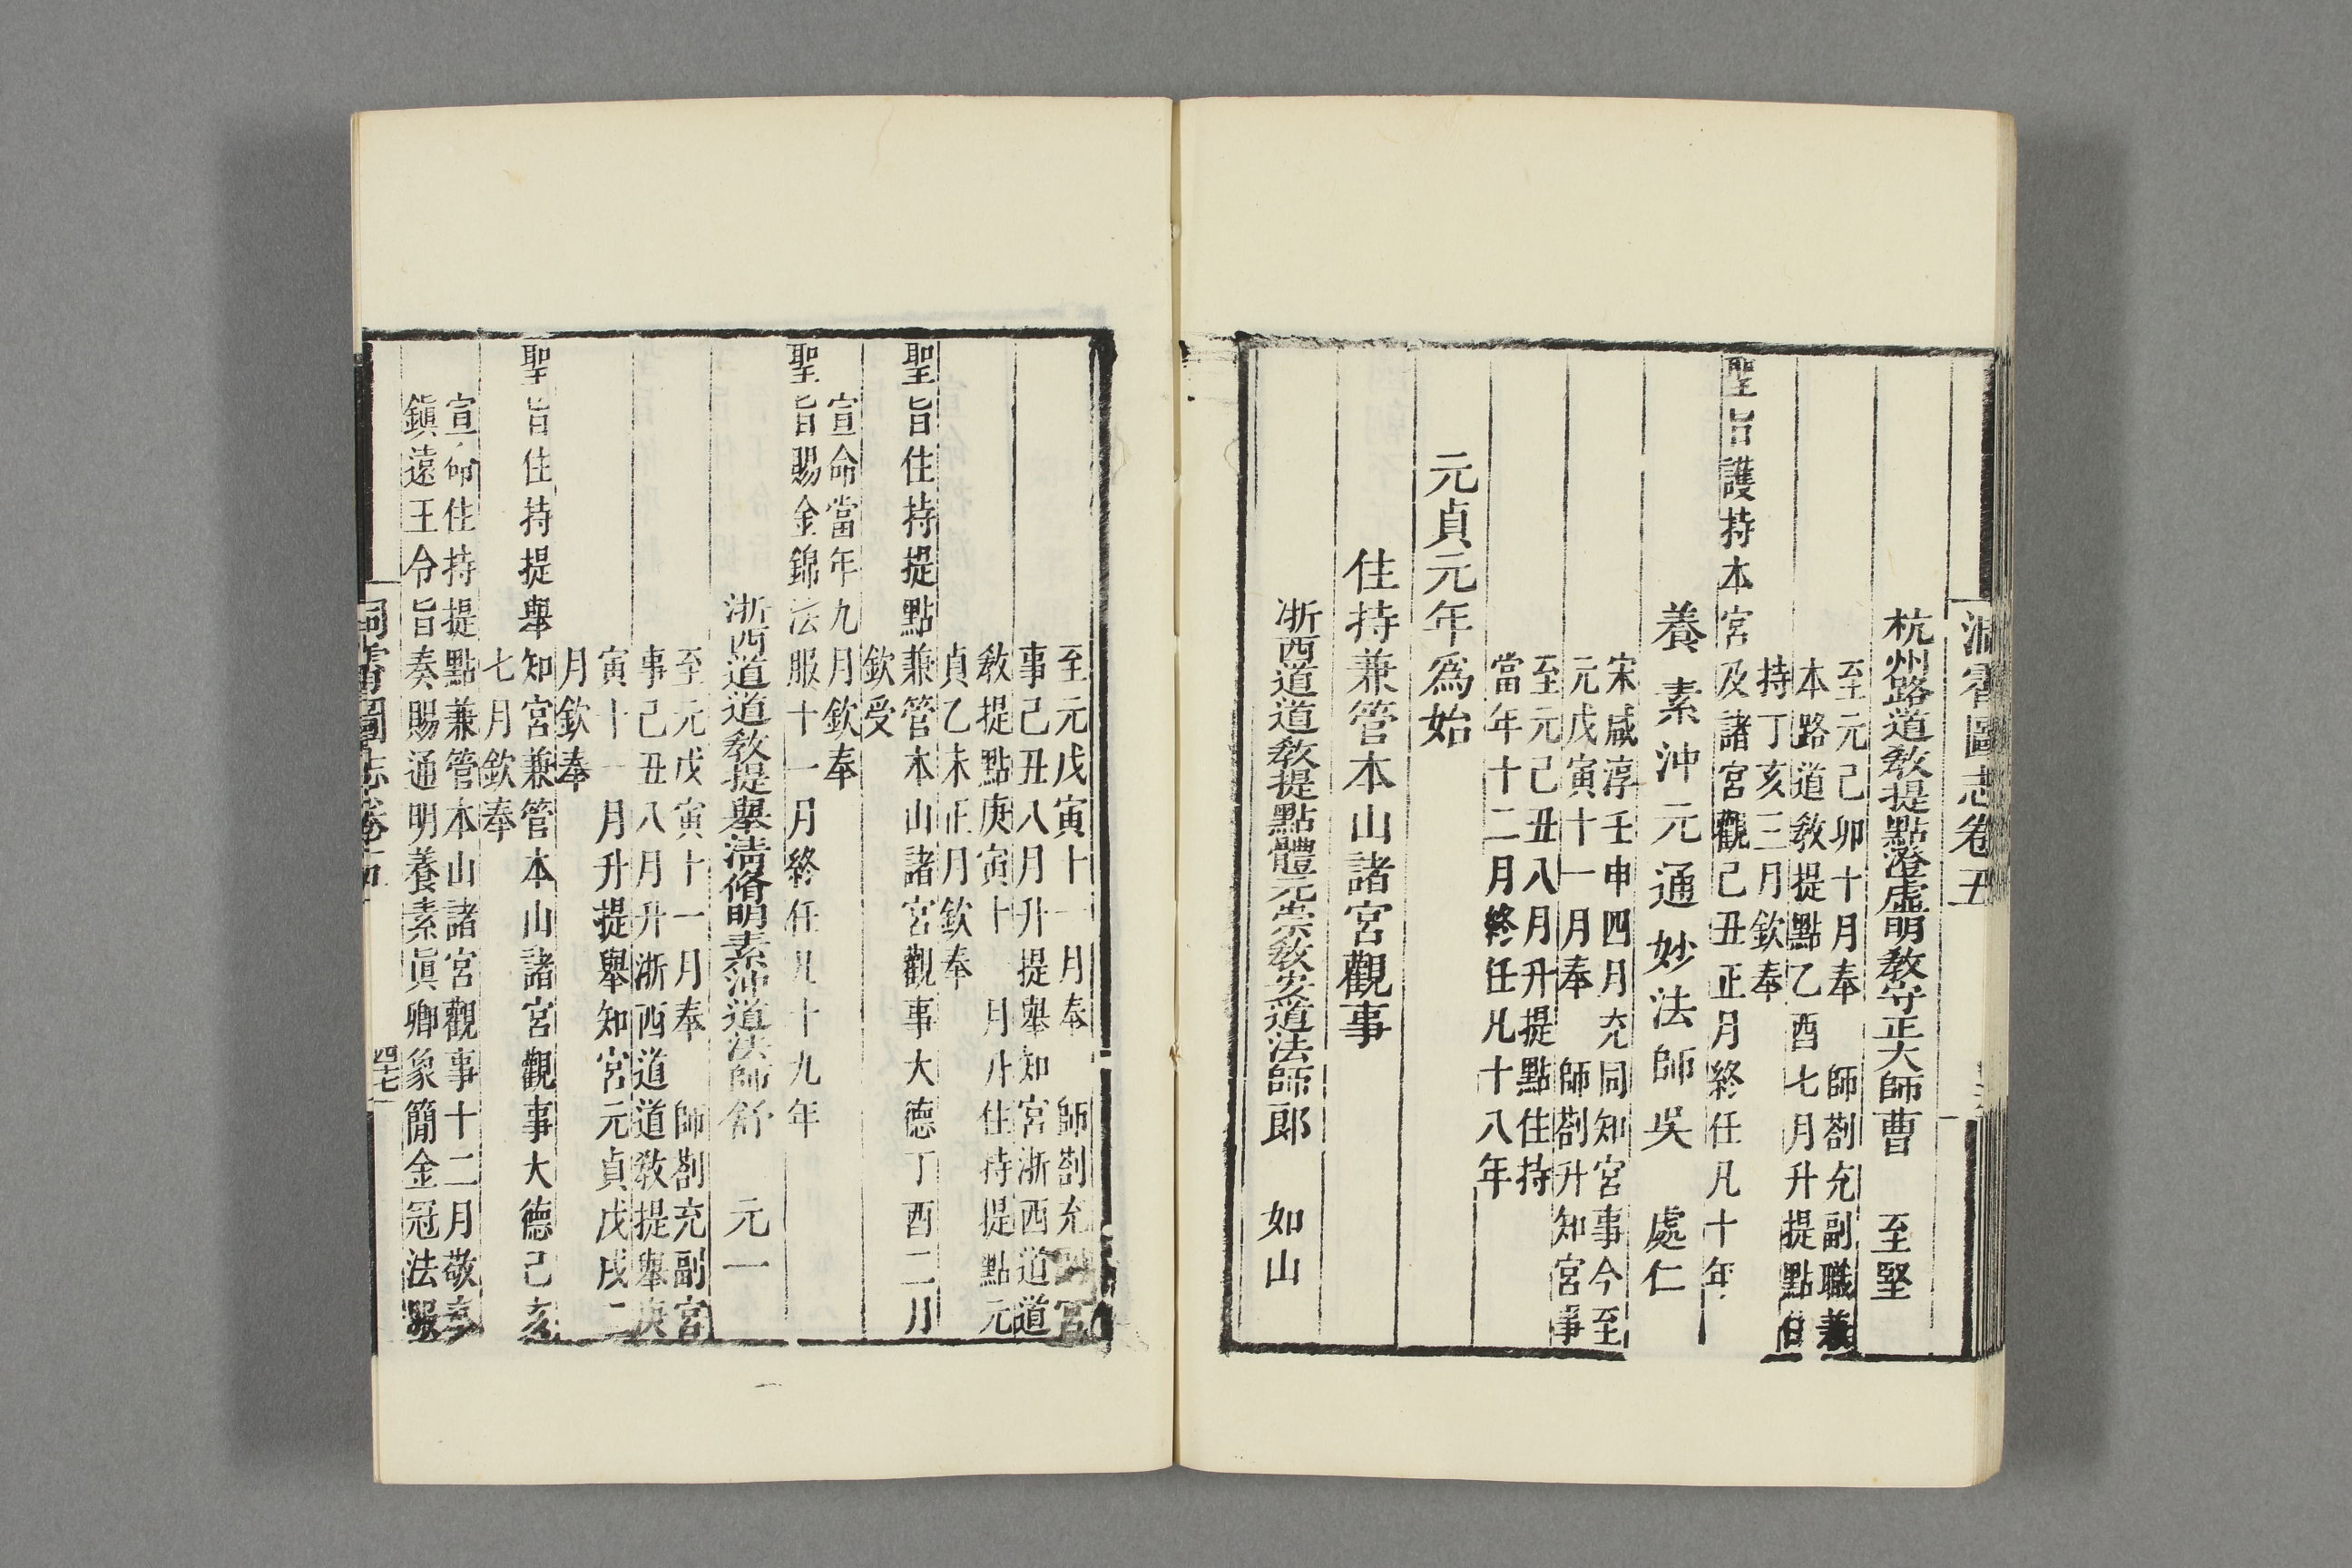 洞霄圖志卷五
杭州路道教提點澄虛明教守正大師曹　至堅
至元己卯十月奉　師劄充副職兼
本路道教提點乙酉七月升提點住
持丁亥三月欽奉
聖旨護持本宮及諸宮觀己丑正月終任凡十年
養素沖元通妙法師吳　處仁
宋咸淳壬申四月充同知宮事今至
元戊寅十一月奉　師劄升知宮事
至元己丑八月升提點住持
當年十二月終任凡十八年
元貞元年為始
住持兼管本山諸宮觀事
浙西道道教提點體元崇教安道法師郎　如山
至元戊寅十一月奉　師劄充　宮
事己丑八月升提舉知宮浙西道道
教提點庚寅十　月升住持提點元
貞乙未正月欽奉
聖旨住持提點兼管本山諸宮觀事大德丁酉二月
欽受
宣命當年九月欽奉
聖旨賜金錦法服十一月終任凡十九年
浙西道道教提舉清脩明素沖道法師舒　元一
至元戊寅十一月奉　師劄充副宮
事己丑八月升浙西道道教提舉庚
寅十一月升提舉知宮元貞戊戌二
月欽奉
聖旨住持提舉知宮兼管本山諸宮觀事大德己亥
七月欽奉
宣命住持提點兼管本山諸宮觀事十二月敬奉
鎮遠王令旨奏賜通明養素眞卿象簡金冠法服
洞霄圖志卷五
四七